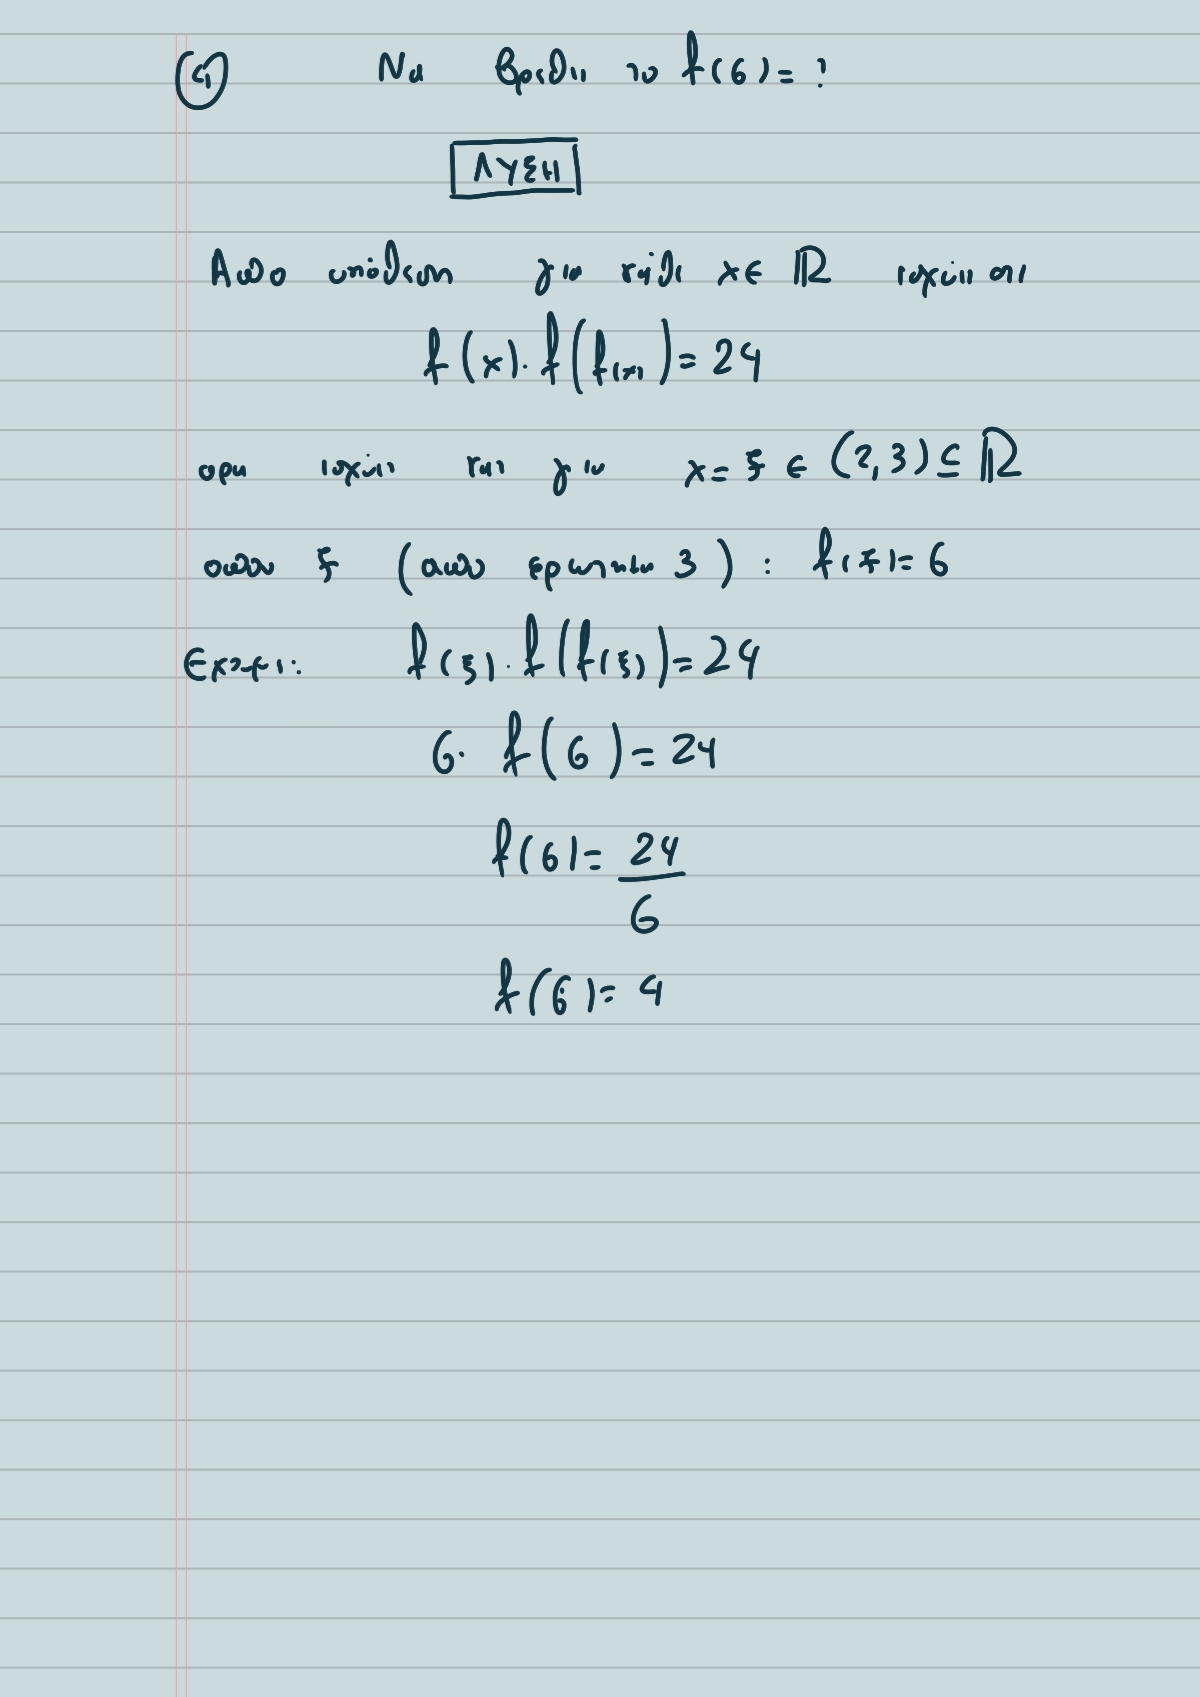 ④ Να βρεθει το f(6)=?
ΛΥΣΗ
Απο υποθεση για καθε x∈ ℝ ισχυει οτι
f(x)·f(f(x))=24
αρα ισχυει και για x=ξ ∈ (2,3)⊆ ℝ
οπου ξ (απο ερωτημα 3) : f(ξ)=6
Εχουμε: f(ξ)·f(f(ξ))=24
6· f(6)=24
f(6)= 24/6
f(6)= 4